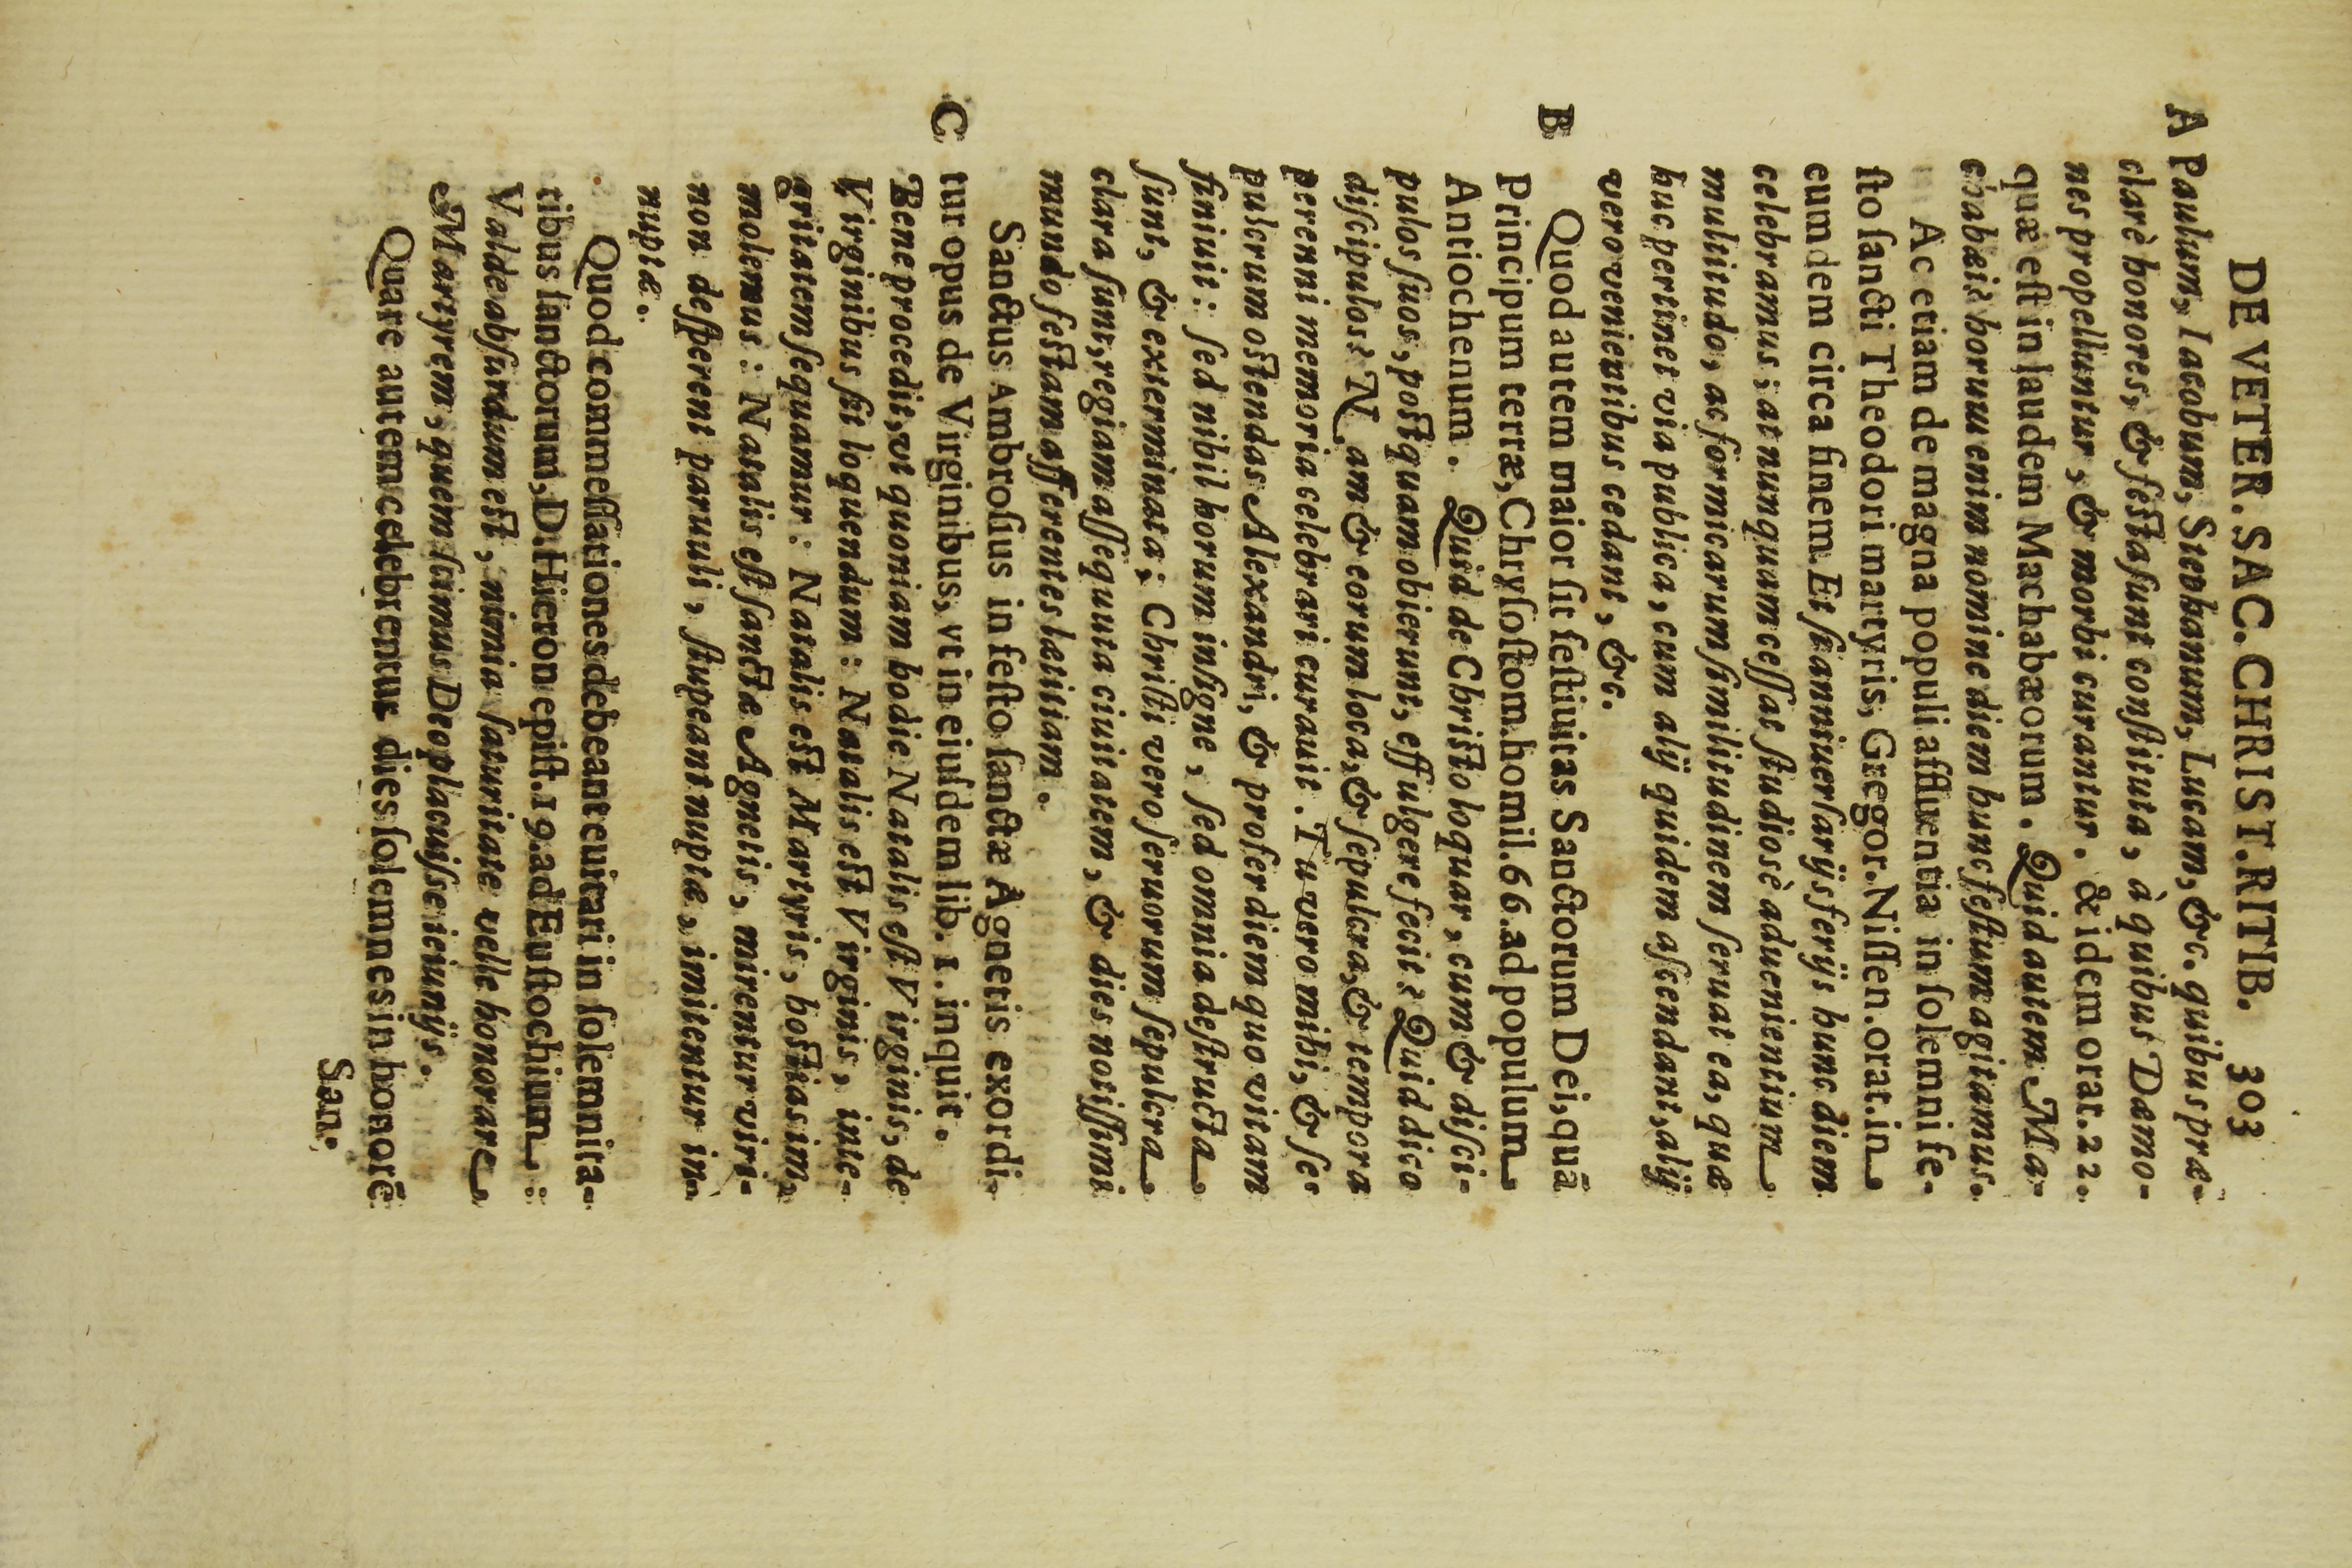 DE VETER. SAC. CHRIST. RITIB. 303
A Paulum, Iacobum, Stephanum, Lucam, &c. quibus præ-
clarè honores, & festa sunt constituta, à quibus Dæmo-
nes propelluntur, & morbi curantur. & idem orat. 22.
quæ est in laudem Machabæorum. Quid autem Ma-
chabæi? horum enim nomine diem hunc festum agitamus.
Ac etiam de magna populi affluentia in solemni fe-
sto sancti Theodori martyris, Gregor. Nissen. orat. in
eumdem circa finem. Et si anniuersarijs ferijs hunc diem
celebramus; at nunquam cessat studiosè aduenientium
multitudo, ac formicarum similitudinem seruat ea, quæ
huc pertinet via publica, cum alij quidem ascendant, alij
vero venientibus cedant, &c.
B Quod autem maior sit festiuitas Sanctorum Dei, quā
Principum terræ, Chrysostom. homil. 66. ad populum
Antiochenum. Quid de Christo loquar, cum & disci-
pulos suos, postquam obierunt, effulgere fecit? Quid dico
discipulos? Nam & eorum loca, & sepulcra, & tempora
perenni memoria celebrari curauit. Tu vero mihi, & se-
pulcrum ostendas Alexandri, & profer diem quo vitam
finiuit: sed nihil horum insigne, sed omnia destructa
sunt, & exterminata; Christi vero seruorum sepulcra
clara sunt, regiam assequuta ciuitatem, & dies notissimi
mundo festam afferentes lætitiam.
Sanctus Ambrosius in festo sanctæ Agnetis exordi-
C tur opus de Virginibus, vt in eiusdem lib. 1. inquit.
Bene procedit, vt quoniam hodie Natalis est Virginis, de
Virginibus sit loquendum: Natalis est Virginis, inte-
gritatem sequamur: Natalis est Martyris, hostias im-
molemus: Natalis est sanctæ Agnetis, mirentur viri-
non desperent paruuli, stupeant nuptæ, imitentur in-
nuptæ.
Quod commessationes debeant euitari in solemnita-
tibus sanctorum, D. Hieron epist. 19. ad Eustochium:
Valde absurdum est, nimia saturitate velle honorare
Martyrem, quem scimus Deo placuisse ieiunijs.
Quare autem celebrentur dies solemnes in honorē
San-